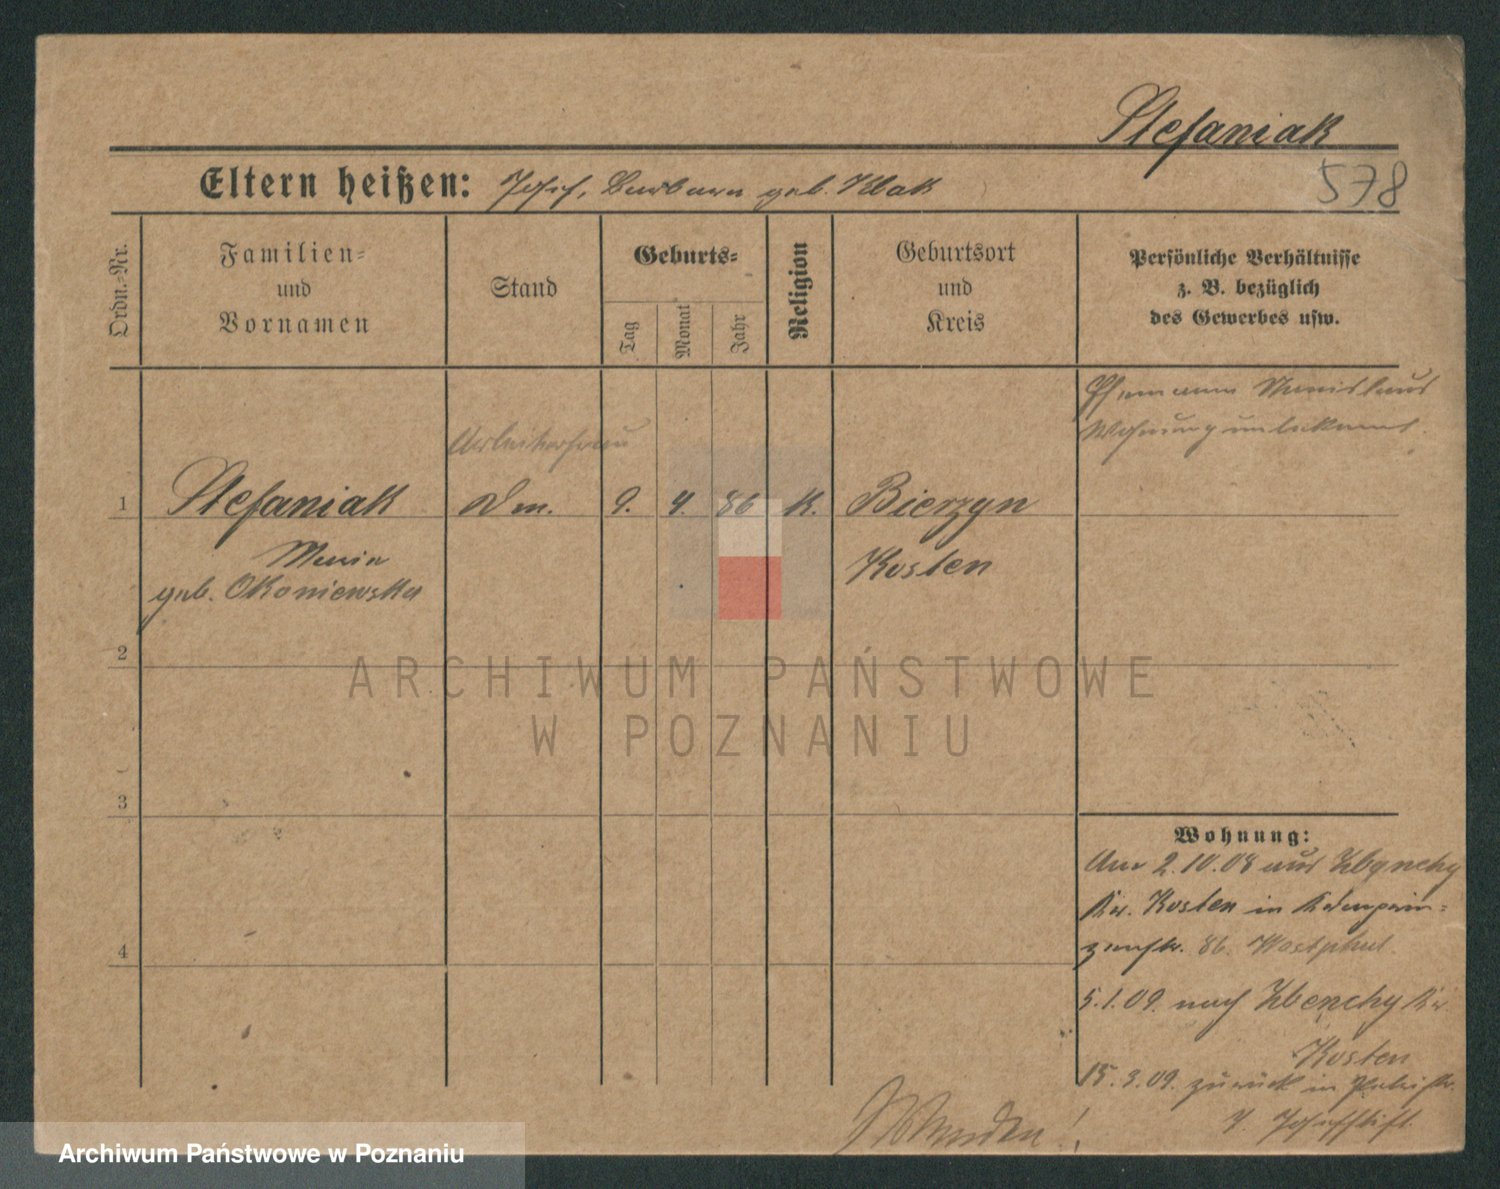 Stefaniak
578
Eltern heißen: Josef, Barbara geb. Klak
Ordn.-Nr.
Familien-
und
Vornamen
Stand
Geburts-
Tag
Monat
Jahr
Religion
Geburtsort
und
Kreis
Persönliche Verhältnisse
z. B. bezüglich
des Gewerbes usw.
Ehemann Stanislaus
Wohnung unbekannt.
Arbeiterfrau
1 Stefaniak 9. 4. 86 K. Bierzyn
Maria Kosten
geb. Okoniewska
2
ARCHIWUM PAŃSTWOWE
W POZNANIU
3
Wohnung:
Am 2.10.08 aus Zbenchy
Kr. Kosten in Kronprin-
zenstr. 86. Westphal.
4
5.1.09. nach Zbenchy Kr
Kosten
15.3.09. zurück in
Josefstift.
Wenden!
Archiwum Państwowe w Poznaniu